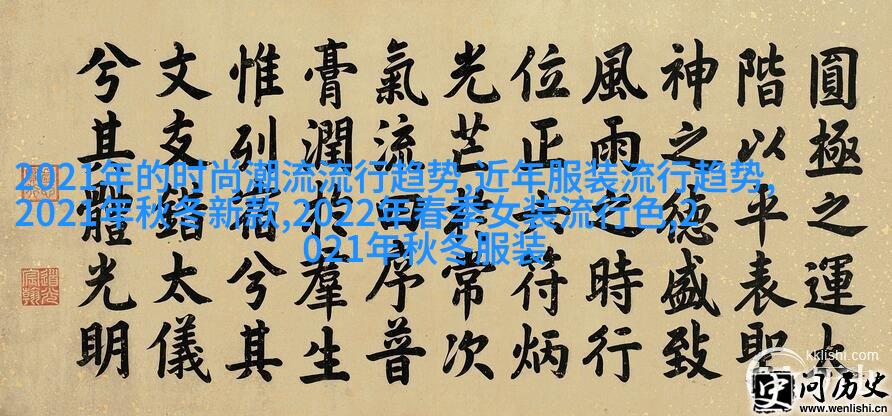 圓極之運
階以平表
神之德盛致
風雨之時行
位正符炳
光芒常次
氣流序普
膏潤於羣生
惟列宿兮其
文錯太儀
兮其體光明
2021年的时尚潮流流行趋势,近年服装流行趋势,
2021年秋冬新款,2022年春季女装流行色,2
021年秋冬服装
道光宸翰
kklishi.com
问历史
www.wenlishi.cn